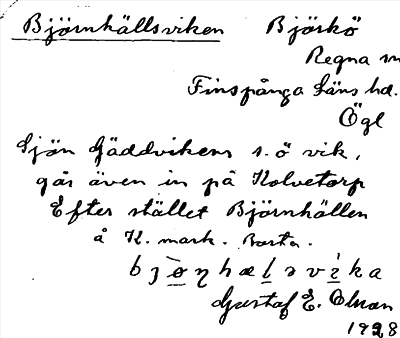 Björnhällsviken Björkö
Regna sn
Finspånga läns hd.
Ögl
Sjön Gäddvikens s.ö vik,
går även in på Kolvetorp
Efter stället Björnhällen
å K. mark.
bjøŋhælavika
Gustaf E. Olsson
1928